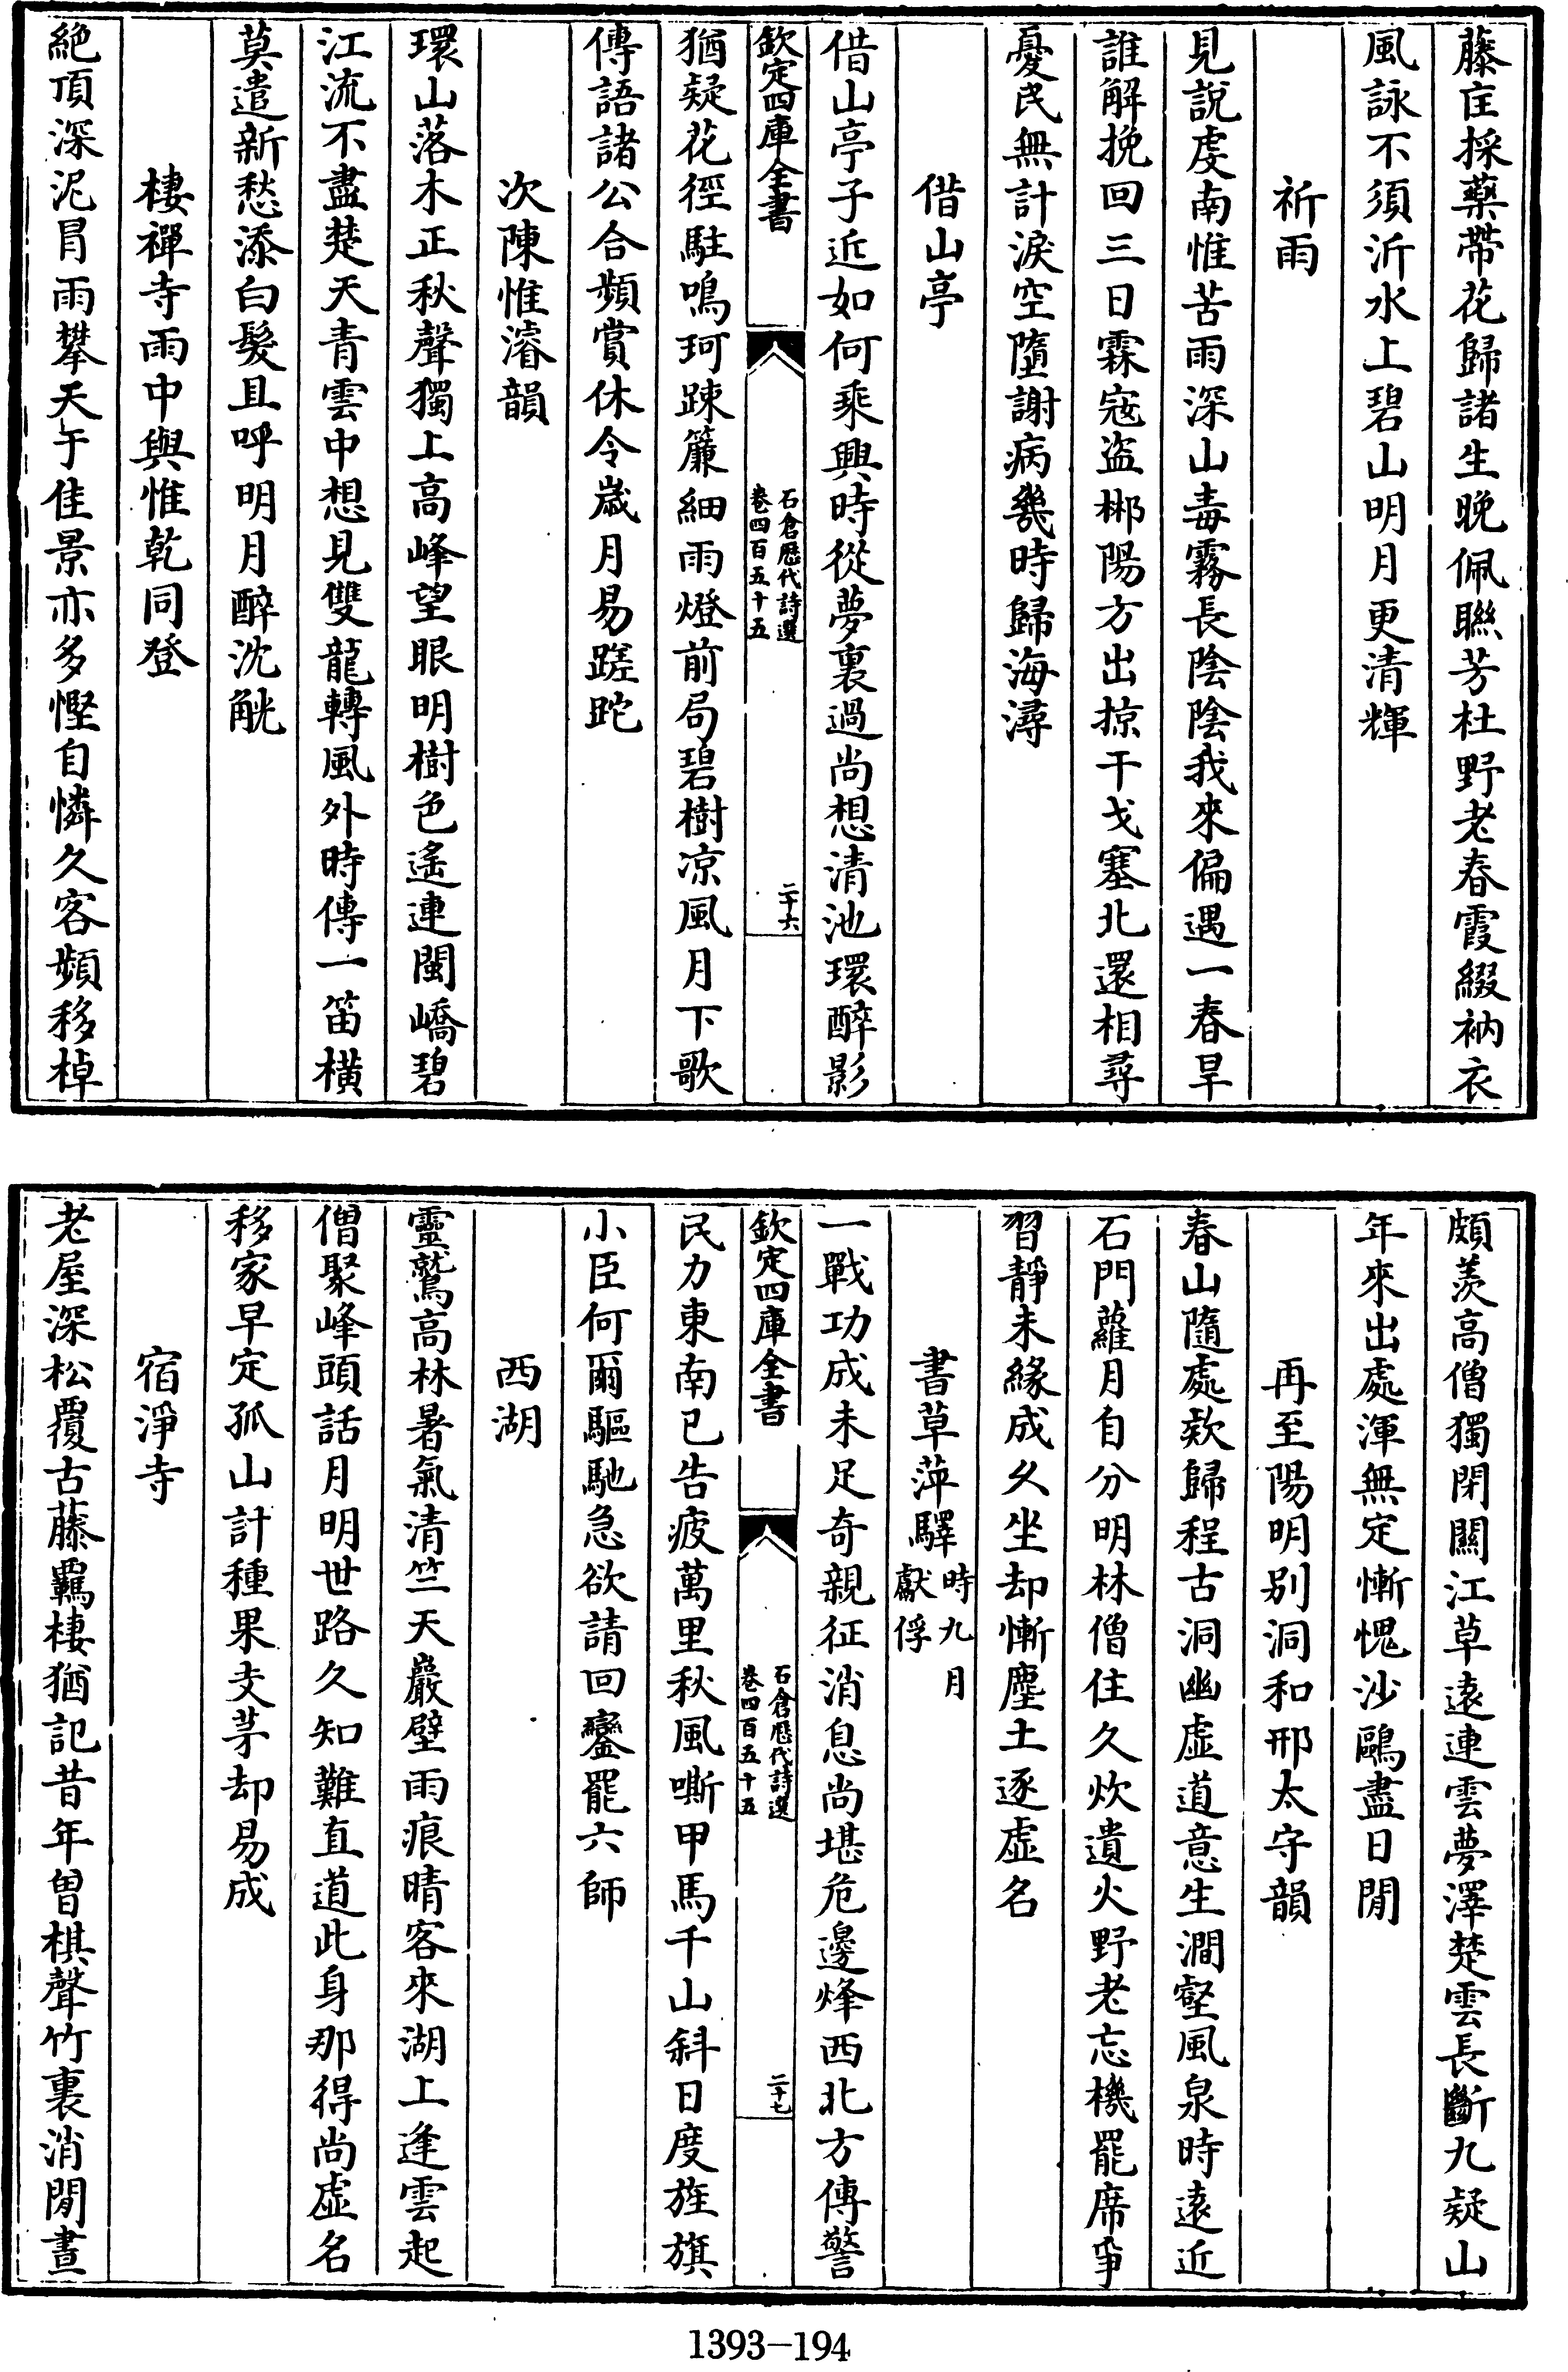 藤庄採藥帶花歸諸生晚佩聯芳杜野老春霞綴衲衣
風詠不須沂水上碧山明月更清輝
祈雨
見說虔南惟苦雨深山毒霧長陰陰我來偏遇一春旱
誰解挽回三日霖寇盜郴陽方出掠干戈塞北還相尋
憂民無計淚空墮謝病幾時歸海潯
借山亭
借山亭子近如何乘興時從夢裏過尚想清池環醉影
欽定四庫全書
石倉歷代詩選
卷四百五十五
二十六
猶疑花徑駐鳴珂踈簾細雨燈前局碧樹凉風月下歌
傳語諸公合頻賞休令歲月易蹉跎
次陳惟濬韻
環山落木正秋聲獨上高峰望眼明樹色遙連閩嶠碧
江流不盡楚天青雲中想見雙龍轉風外時傳一笛横
莫遣新愁添白髮且呼明月醉沈觥
棲禪寺雨中與惟乾同登
絕頂深泥冒雨攀天于佳景亦多慳自憐久客頻移棹
頗羨高僧獨閉關江草遠連雲夢澤楚雲長斷九疑山
年來出處渾無定慚愧沙鷗盡日閒
再至陽明别洞和邢太守韻
春山隨處欵歸程古洞幽虛道意生澗壑風泉時遠近
石門蘿月自分明林僧住久炊遺火野老忘機罷席爭
習靜未緣成久坐却慚塵土逐虛名
書草萍驛時九月獻俘
一戰功成未足奇親征消息尚堪危邊烽西北方傳警
欽定四庫全書
石倉歷代詩選
卷四百五十五
二十七
民力東南已告疲萬里秋風嘶甲馬千山斜日度旌旗
小臣何爾驅馳急欲請回鑾罷六師
西湖
靈鷲高林暑氣清竺天巖壁雨痕晴客來湖上逢雲起
僧聚峰頭話月明世路久知難直道此身那得尚虛名
移家早定孤山計種果支茅却易成
宿淨寺
老屋深松覆古藤羈棲猶記昔年曾棋聲竹裏消閒晝
1393-194